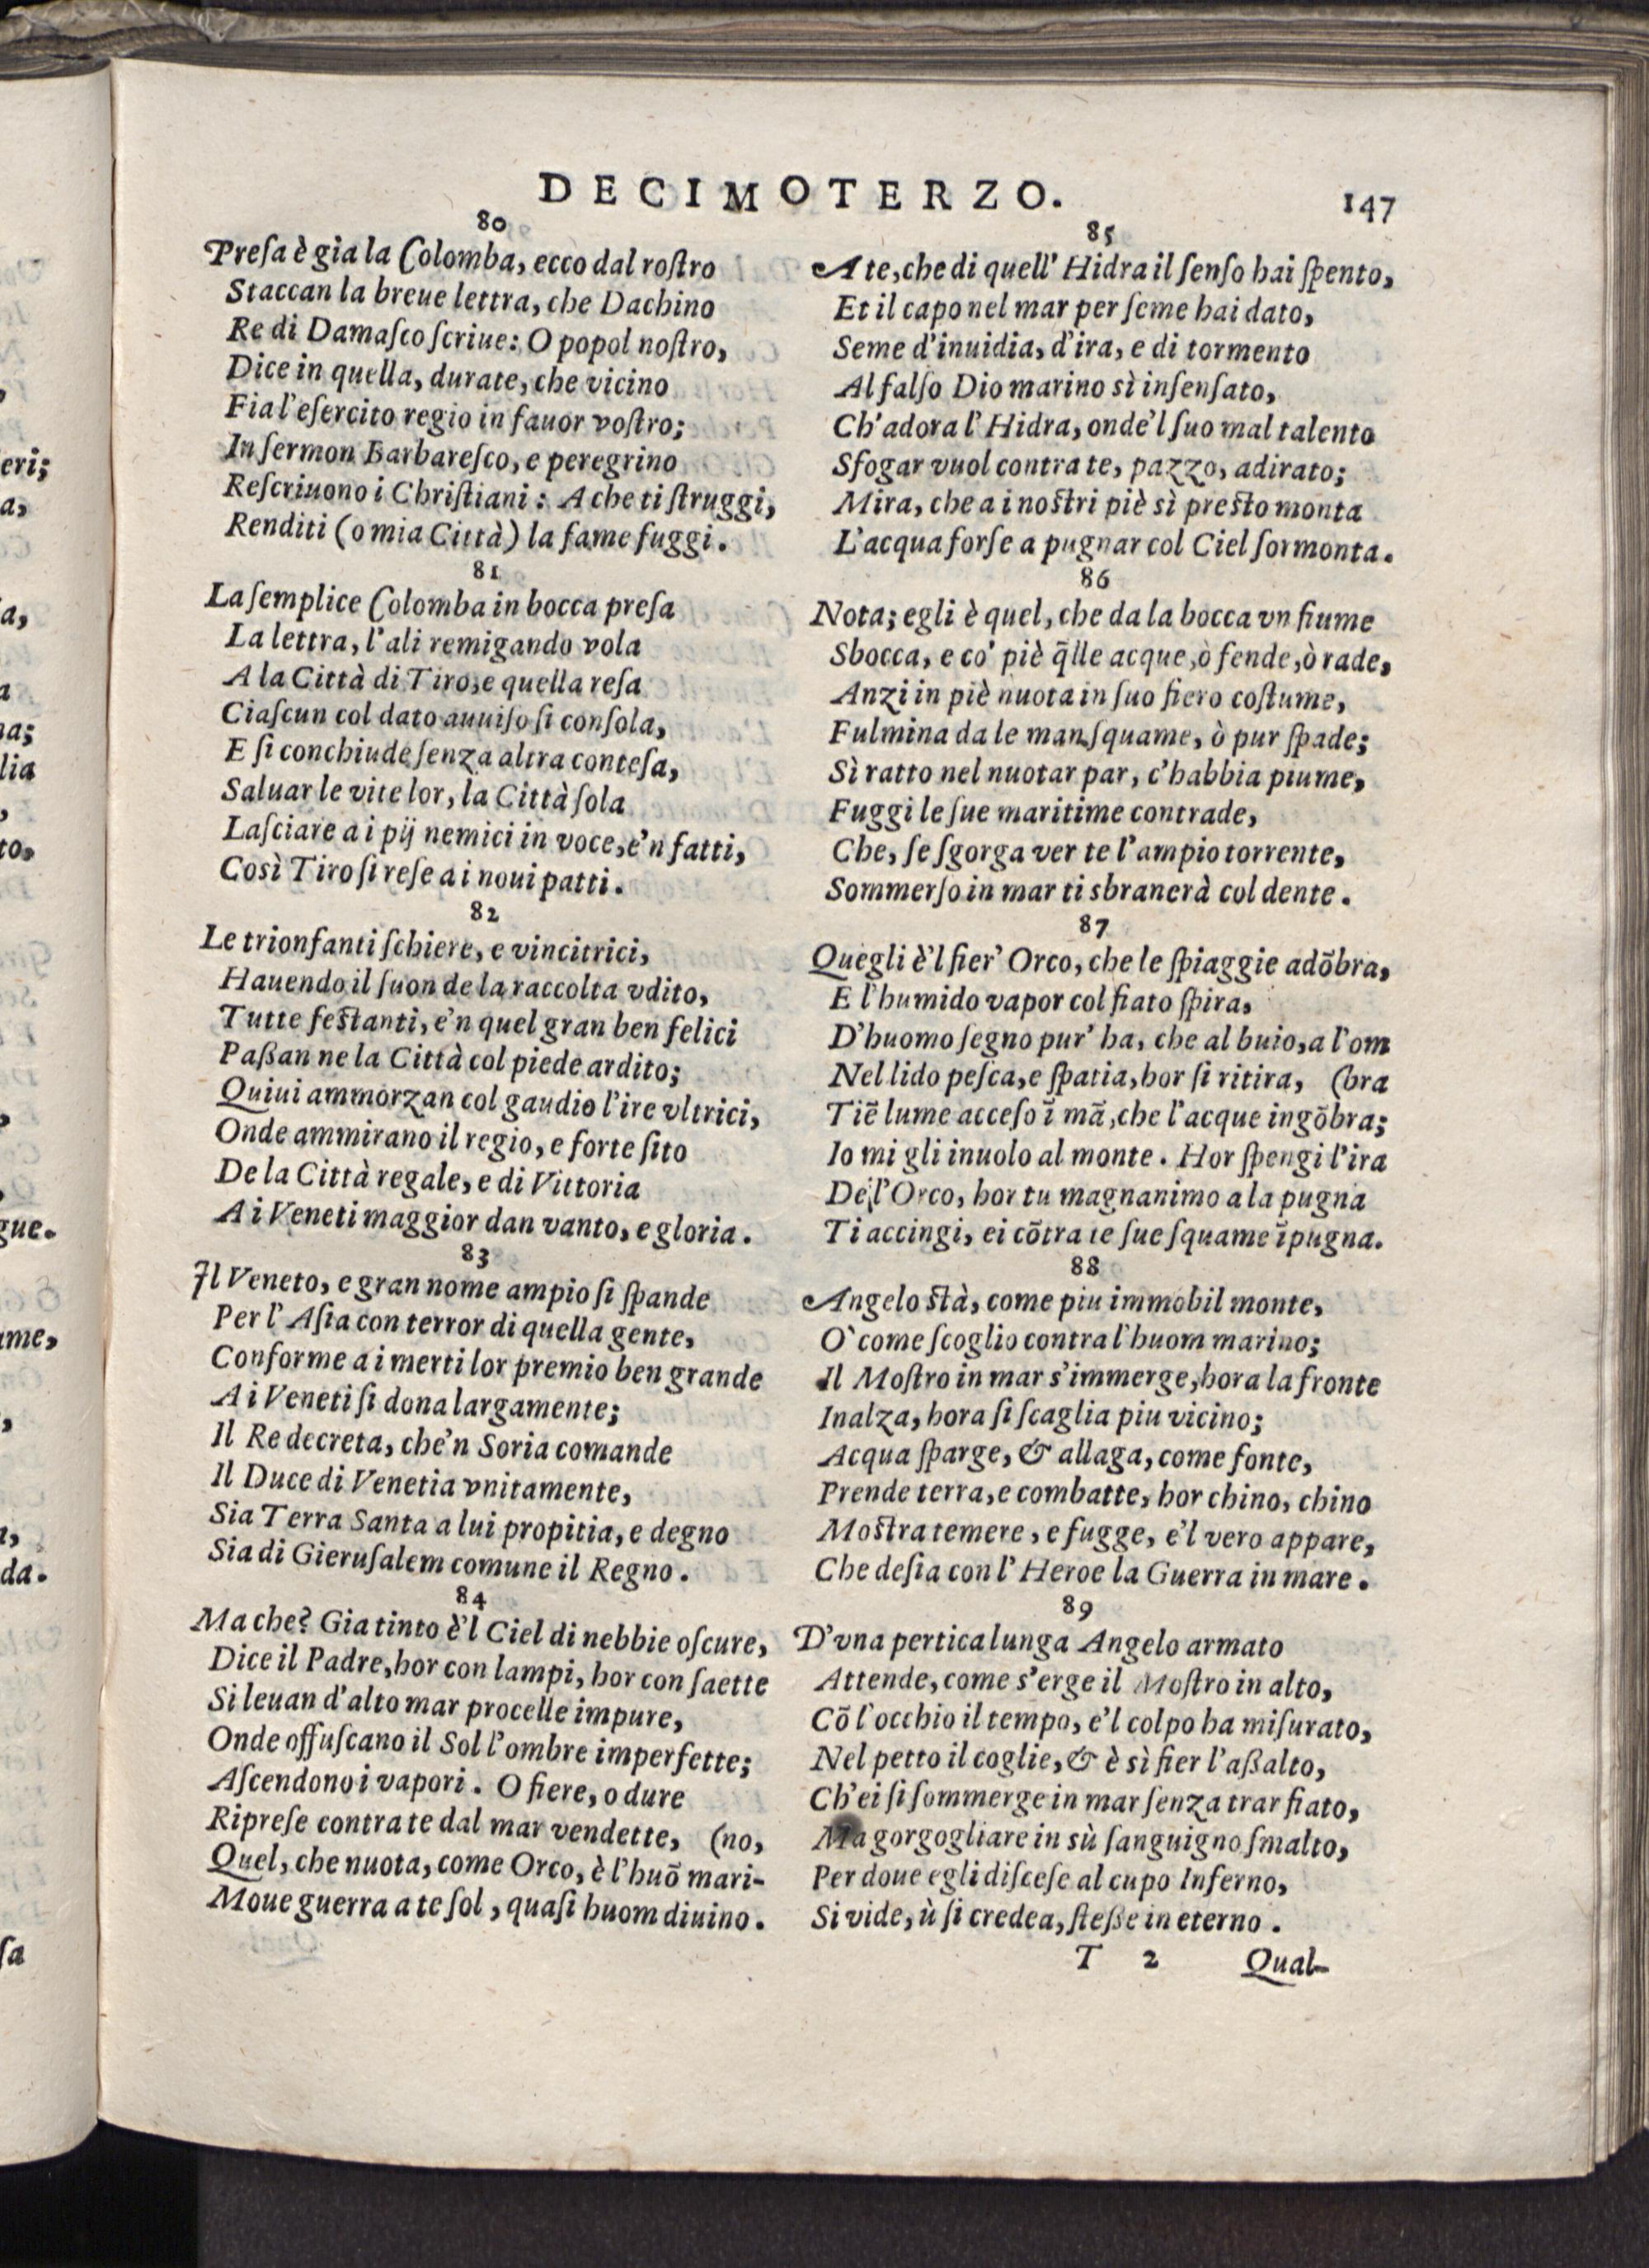 DECIMOTERZO.
147
80
Preſa è gia la Colomba, ecco dal roſtro
Staccan la breue lettra, che Dachino
Re di Damaſco ſcriue: O popol noſtro,
Dice in quella, durate, che vicino
Fia l'eſercito regio in fauor voſtro;
In ſermon Barbareſco, e peregrino
Reſcriuono i Chriſtiani: A che ti ſtruggi,
Renditi (o mia Città) la fame fuggi.
81
La ſemplice Colomba in bocca preſa
La lettra, l'ali remigando vola
A la Città di Tiro, e quella reſa
Ciaſcun col dato auuiſo ſi conſola,
E ſi conchiude ſenza altra conteſa,
Saluar le vite lor, la Città ſola
Laſciare a i pij nemici in voce, e'n fatti,
Così Tiro ſi reſe a i noui patti.
82
Le trionfanti ſchiere, e vincitrici,
Hauendo il ſuon de la raccolta vdito,
Tutte feſtanti, e'n quel gran ben felici
Paßan ne la Città col piede ardito;
Quiui ammorzan col gaudio l'ire vltrici,
Onde ammirano il regio, e forte ſito
De la Città regale, e di Vittoria
A i Veneti maggior dan vanto, e gloria.
83
Il Veneto, e gran nome ampio ſi ſpande
Per l'Aſia con terror di quella gente,
Conforme a i merti lor premio ben grande
A i Veneti ſi dona largamente;
Il Re decreta, che'n Soria comande
Il Duce di Venetia vnitamente,
Sia Terra Santa a lui propitia, e degno
Sia di Gieruſalem comune il Regno.
84
Ma che? Gia tinto è'l Ciel di nebbie oſcure,
Dice il Padre, hor con lampi, hor con ſaette
Si leuan d'alto mar procelle impure,
Onde offuſcano il Sol l'ombre imperfette;
Aſcendono i vapori. O fiere, o dure
Ripreſe contra te dal mar vendette, (no,
Quel, che nuota, come Orco, è l'huō mari-
Moue guerra a te ſol, quaſi huom diuino.
85
A te, che di quell'Hidra il ſenſo hai ſpento,
Et il capo nel mar per ſeme hai dato,
Seme d'inuidia, d'ira, e di tormento
Al falſo Dio marino sì inſenſato,
Ch'adora l'Hidra, onde'l ſuo mal talento
Sfogar vuol contra te, pazzo, adirato;
Mira, che a i noſtri piè sì preſto monta
L'acqua forſe a pugnar col Ciel ſormonta.
86
Nota; egli è quel, che da la bocca vn fiume
Sbocca, e co' piè q̃lle acque, ò fende, ò rade,
Anzi in piè nuota in ſuo fiero coſtume,
Fulmina da le man ſquame, ò pur ſpade;
Sì ratto nel nuotar par, c'habbia piume,
Fuggi le ſue maritime contrade,
Che, ſe ſgorga ver te l'ampio torrente,
Sommerſo in mar ti sbranerà col dente.
87
Quegli è'l fier'Orco, che le ſpiaggie adōbra,
E l'humido vapor col fiato ſpira,
D'huomo ſegno pur'ha, che al buio, a l'om
Nel lido peſca, e ſpatia, hor ſi ritira, (bra
Tiē lume acceſo ī mā, che l'acque ingōbra;
Io mi gli inuolo al monte. Hor ſpengi l'ira
De l'Orco, hor tu magnanimo a la pugna
Ti accingi, ei cōtra te ſue ſquame īpugna.
88
Angelo ſtà, come piu immobil monte,
O' come ſcoglio contra l'huom marino;
Il Moſtro in mar s'immerge, hora la fronte
Inalza, hora ſi ſcaglia piu vicino;
Acqua ſparge, & allaga, come fonte,
Prende terra, e combatte, hor chino, chino
Moſtra temere, e fugge, e'l vero appare,
Che deſia con l'Heroe la Guerra in mare.
89
D'vna pertica lunga Angelo armato
Attende, come s'erge il Moſtro in alto,
Cō l'occhio il tempo, e'l colpo ha miſurato,
Nel petto il coglie, & è sì fier l'aßalto,
Ch'ei ſi ſommerge in mar ſenza trar fiato,
Ma gorgogliare in sù ſanguigno ſmalto,
Per doue egli diſceſe al cupo Inferno,
Si vide, ù ſi credea, ſteße in eterno.
T 2 Qual-